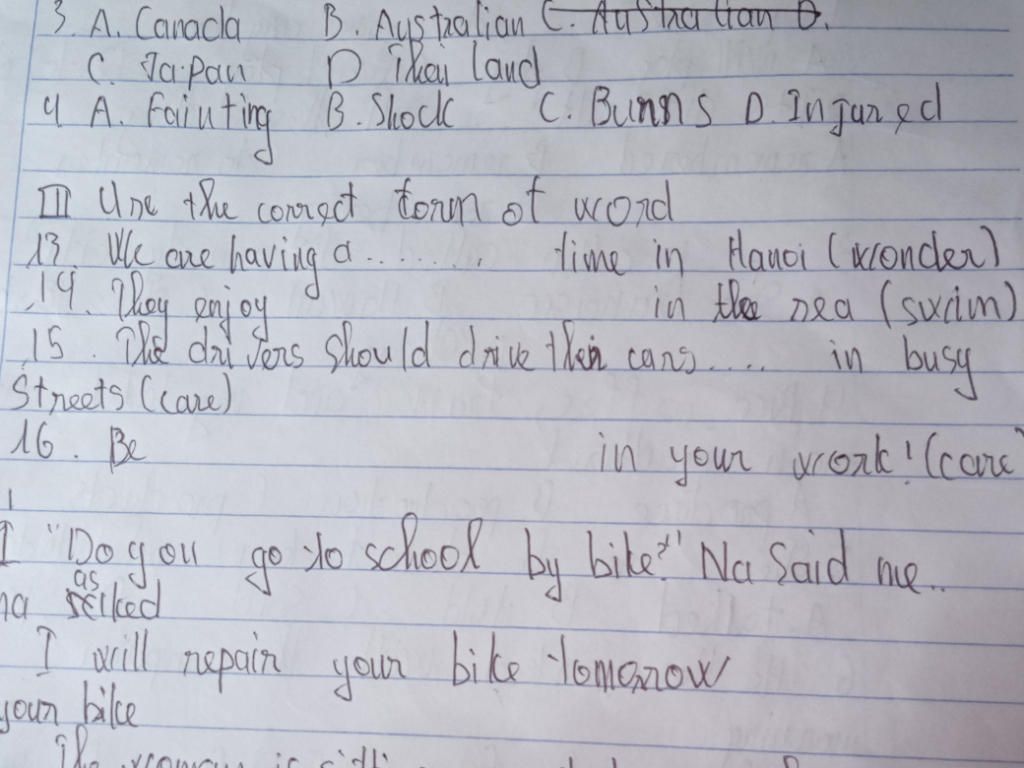 3 A. Canada B. Australian C. Australian D.
C. Japan D Thai land
4 A. Fainting B. Shock C. Burns D. Injured
III Use the correct form of word
13 We are having a ........ time in Hanoi (wonder)
14. They enjoy in the sea (swim)
15. The drivers should drive their cars .... in busy
Streets (care)
16. Be in your work! (care
I "Do you go to school by bike?" Na Said me..
na asked
I will repair your bike tomorrow
your bike
The woman is